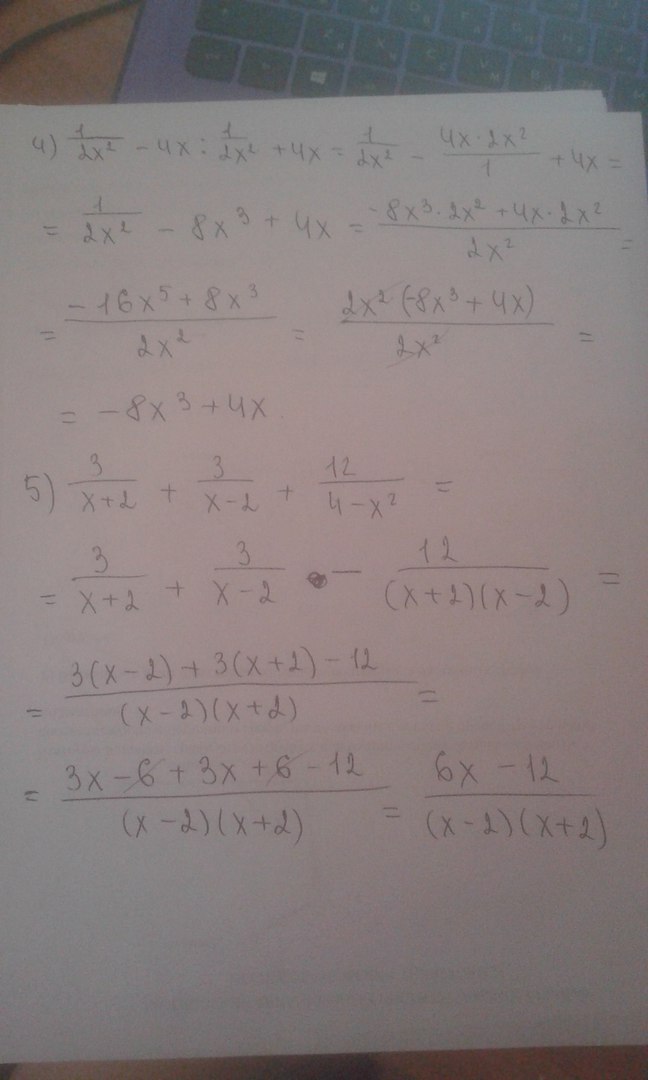 4) 1/2x² - 4x : 1/2x² + 4x = 1/2x² - 4x·2x²/1 + 4x =
= 1/2x² - 8x³ + 4x = -8x³·2x² + 4x·2x²/2x² =
= -16x⁵ + 8x³/2x² = 2x²(-8x³ + 4x)/2x² =
= -8x³ + 4x
5) 3/x+2 + 3/x-2 + 12/4-x² =
= 3/x+2 + 3/x-2 - 12/(x+2)(x-2) =
= 3(x-2) + 3(x+2) - 12/(x-2)(x+2) =
= 3x - 6 + 3x + 6 - 12/(x-2)(x+2) = 6x - 12/(x-2)(x+2)